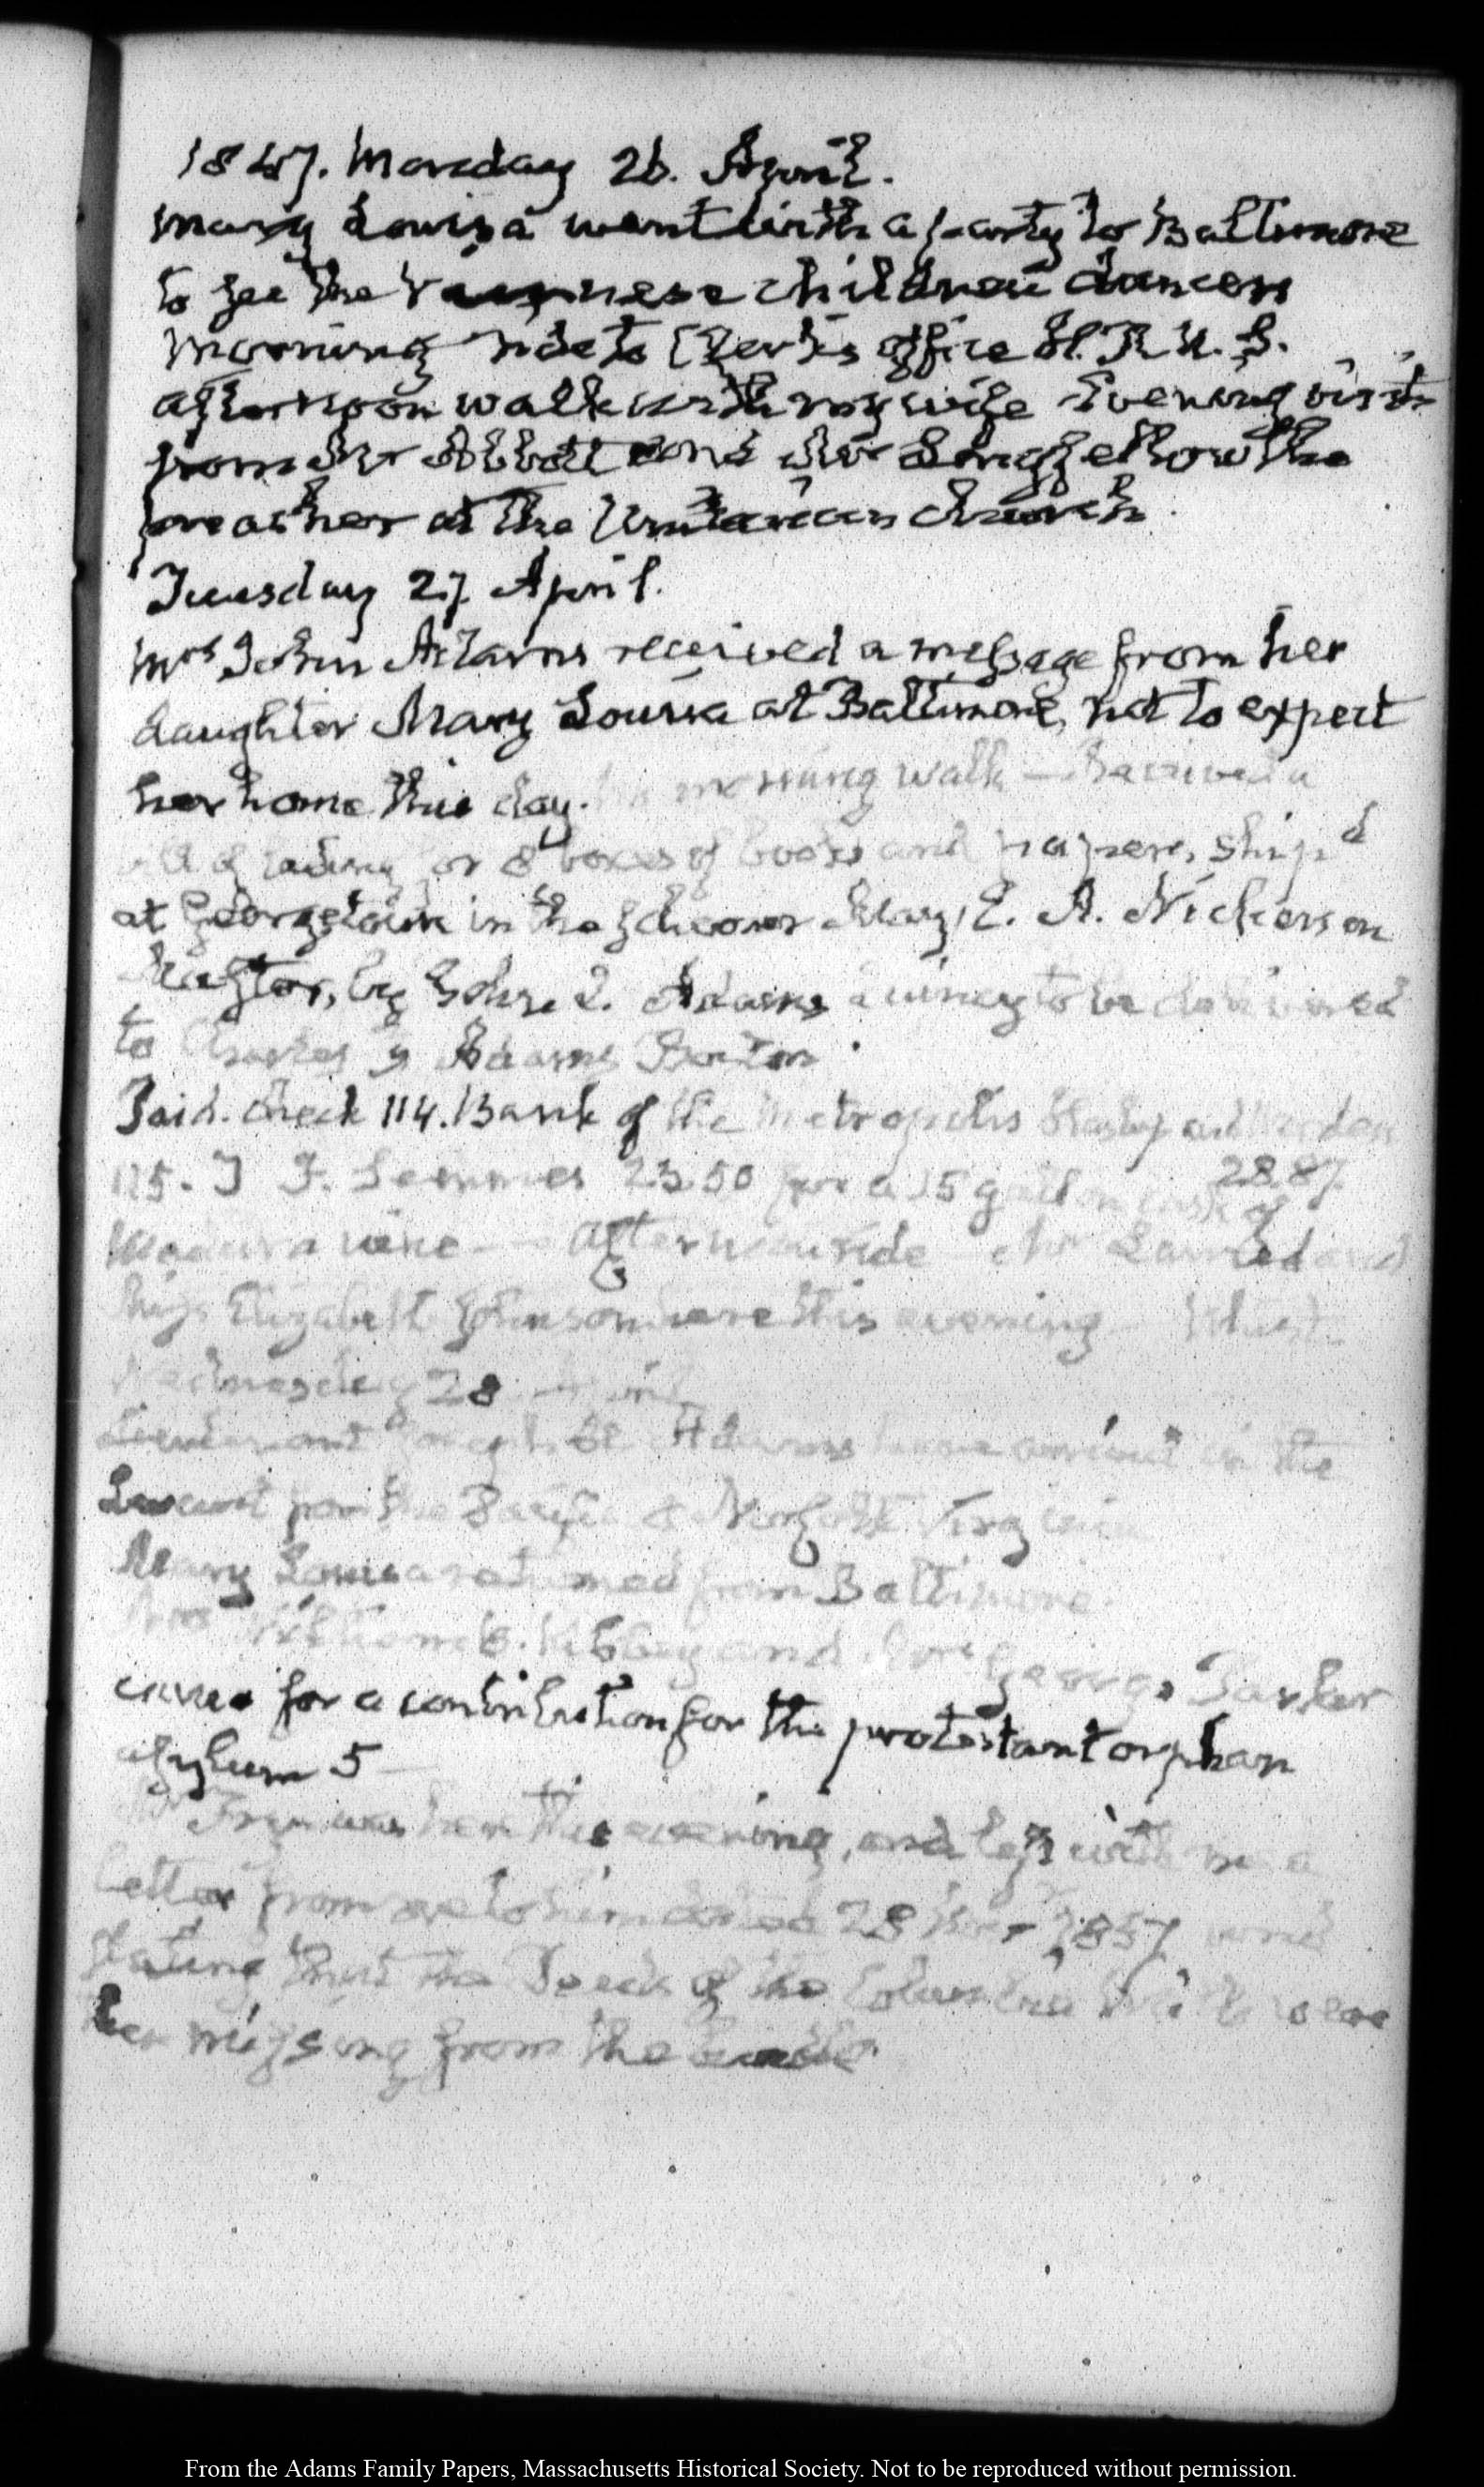 1847. Monday 26. April.
Mary Louisa went with a party to Baltimore
to see the Viennese children dancers
Morning ride to Clerk's office H. R. U. S.
afternoon walk with my wife Evening visit
from Mr Abbott and Mr Longfellow the
preacher at the Unitarian Church
Tuesday 27. April.
Mrs John Adams received a message from her
daughter Mary Louisa at Baltimore, not to expect
her home this day. morning walk — Received a
bill of lading for 8 boxes of books and papers, ship'd
at Georgetown in the Schooner Mary, E. A. Nickerson
Master, by John Q. Adams Quincy to be delivered
to Charles F Adams Boston
Paid. Check 114. Bank of the Metropolis
28.87
115. J F. Semmes 23.50 for a 15 gallon cask of
Madeira wine — Afternoon ride Mr and
Miss Elizabeth Johnson here this evening Whist
Wednesday 28 April
Lieutenant Joseph H. Adams in the
for the Pacific at Norfolk Virginia
Mary Louisa returned from Baltimore.
Mrs and Mrs George Parker
came for a contribution for the protestant orphan
asylum 5 —
Mr was here this evening, and left with me a
letter from me to him dated 28 and
stating that the of the Columbia were
missing from the